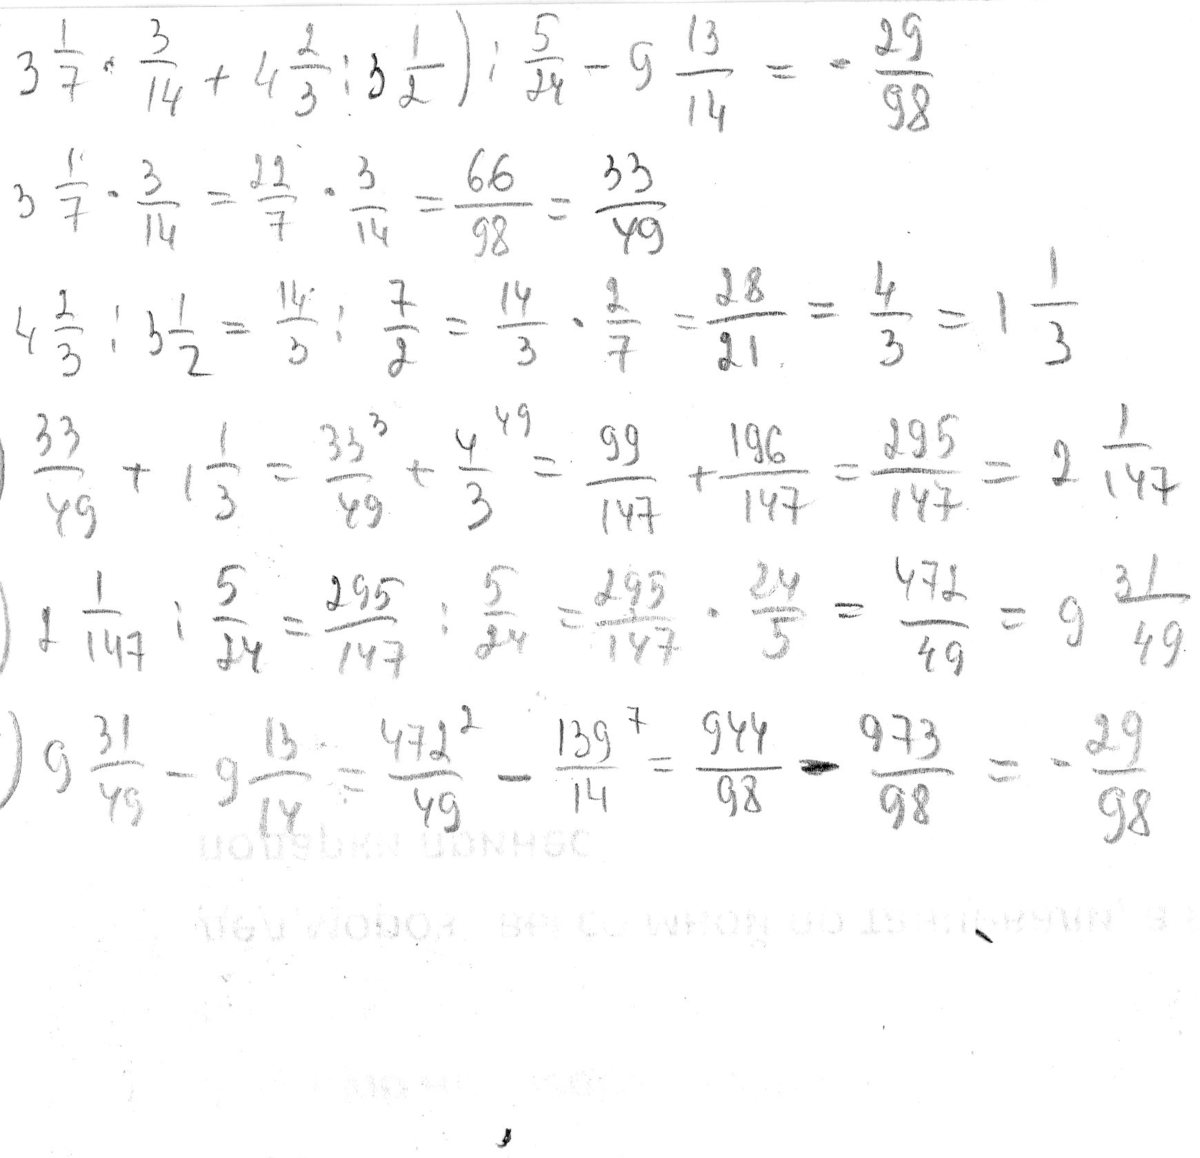 3 1/7 · 3/14 + 4 2/3 : 3 1/2) : 5/24 - 9 13/14 = - 29/98
3 1/7 · 3/14 = 22/7 · 3/14 = 66/98 = 33/49
4 2/3 : 3 1/2 = 14/3 : 7/2 = 14/3 · 2/7 = 28/21 = 4/3 = 1 1/3
) 33/49 + 1 1/3 = 33³/49 + 4⁴⁹/3 = 99/147 + 196/147 = 295/147 = 2 1/147
) 2 1/147 : 5/24 = 295/147 : 5/24 = 295/147 · 24/5 = 472/49 = 9 31/49
) 9 31/49 - 9 13/14 = 472²/49 - 139⁷/14 = 944/98 - 973/98 = - 29/98